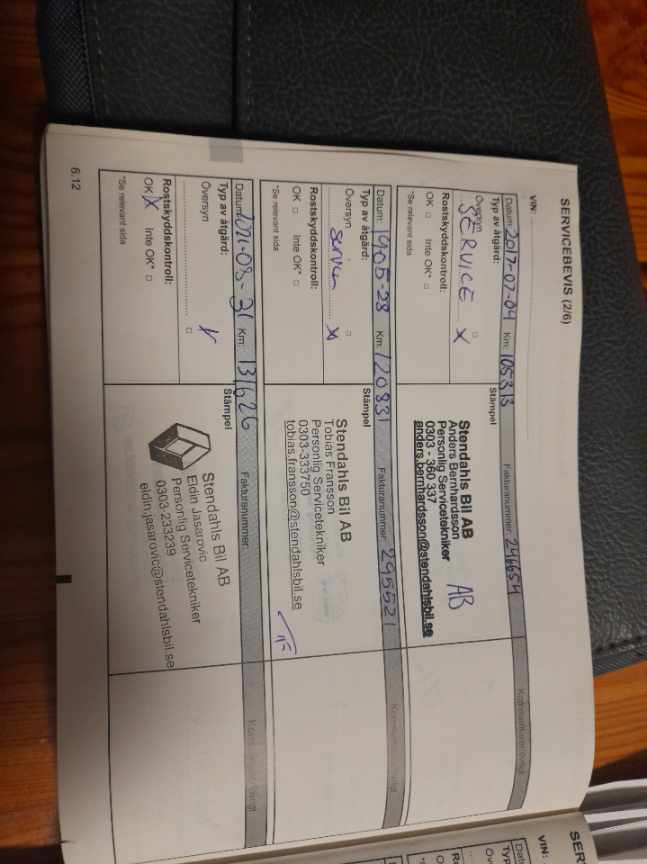 SERVICEBEVIS (2/6)
VIN:
Datum: 2017-07-04 Km: 105313 Fakturanummer: 246654
Typ av åtgärd:
Översyn
SERVICE X
Rostskyddskontroll:
OK Inte OK*
*Se relevant sida
Stämpel
Stendahls Bil AB
Anders Bernhardsson
Personlig Servicetekniker
0303 - 360 337
anders.bernhardsson@stendahlsbil.se
AB
Datum: 1905-28 Km: 120831 Fakturanummer: 295521
Typ av åtgärd:
Översyn
Service X
Rostskyddskontroll:
OK Inte OK*
*Se relevant sida
Stämpel
Stendahls Bil AB
Tobias Fransson
Personlig Servicetekniker
0303-333750
tobias.fransson@stendahlsbil.se
TF
Datum: Km: 131626 Fakturanummer:
Typ av åtgärd:
Översyn
Rostskyddskontroll:
OK X Inte OK*
*Se relevant sida
Stämpel
Stendahls Bil AB
Eldin Jasarovic
Personlig Servicetekniker
0303-233239
eldin.jasarovic@stendahlsbil.se
6.12
SER
VIN: